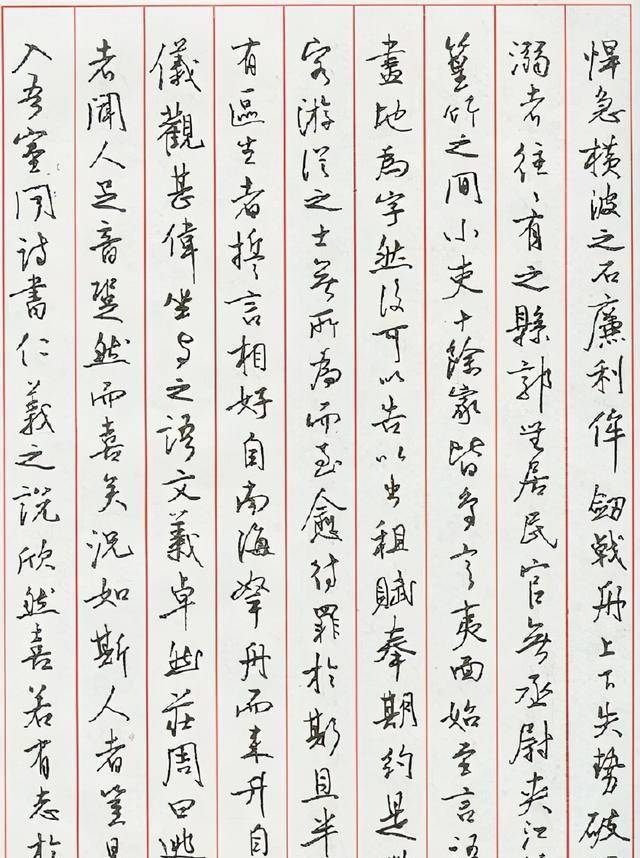 悍急橫波之石廉利侔劒戟舟上下失勢破
溺者往〻有之縣郭無居民官無丞尉夾江
篁竹之間小吏十餘家皆鳥言夷面始至言語
畫地為字然後可以告以出租賦奉期約是
客游從之士無所為而至愈待罪於斯且半
有區生者誓言相好自南海挐舟而來升自
儀觀甚偉坐與之語文義卓然莊周曰逃
者聞人足音跫然而喜矣況如斯人者豈易
入吾室聞詩書仁義之說欣然喜若有志於